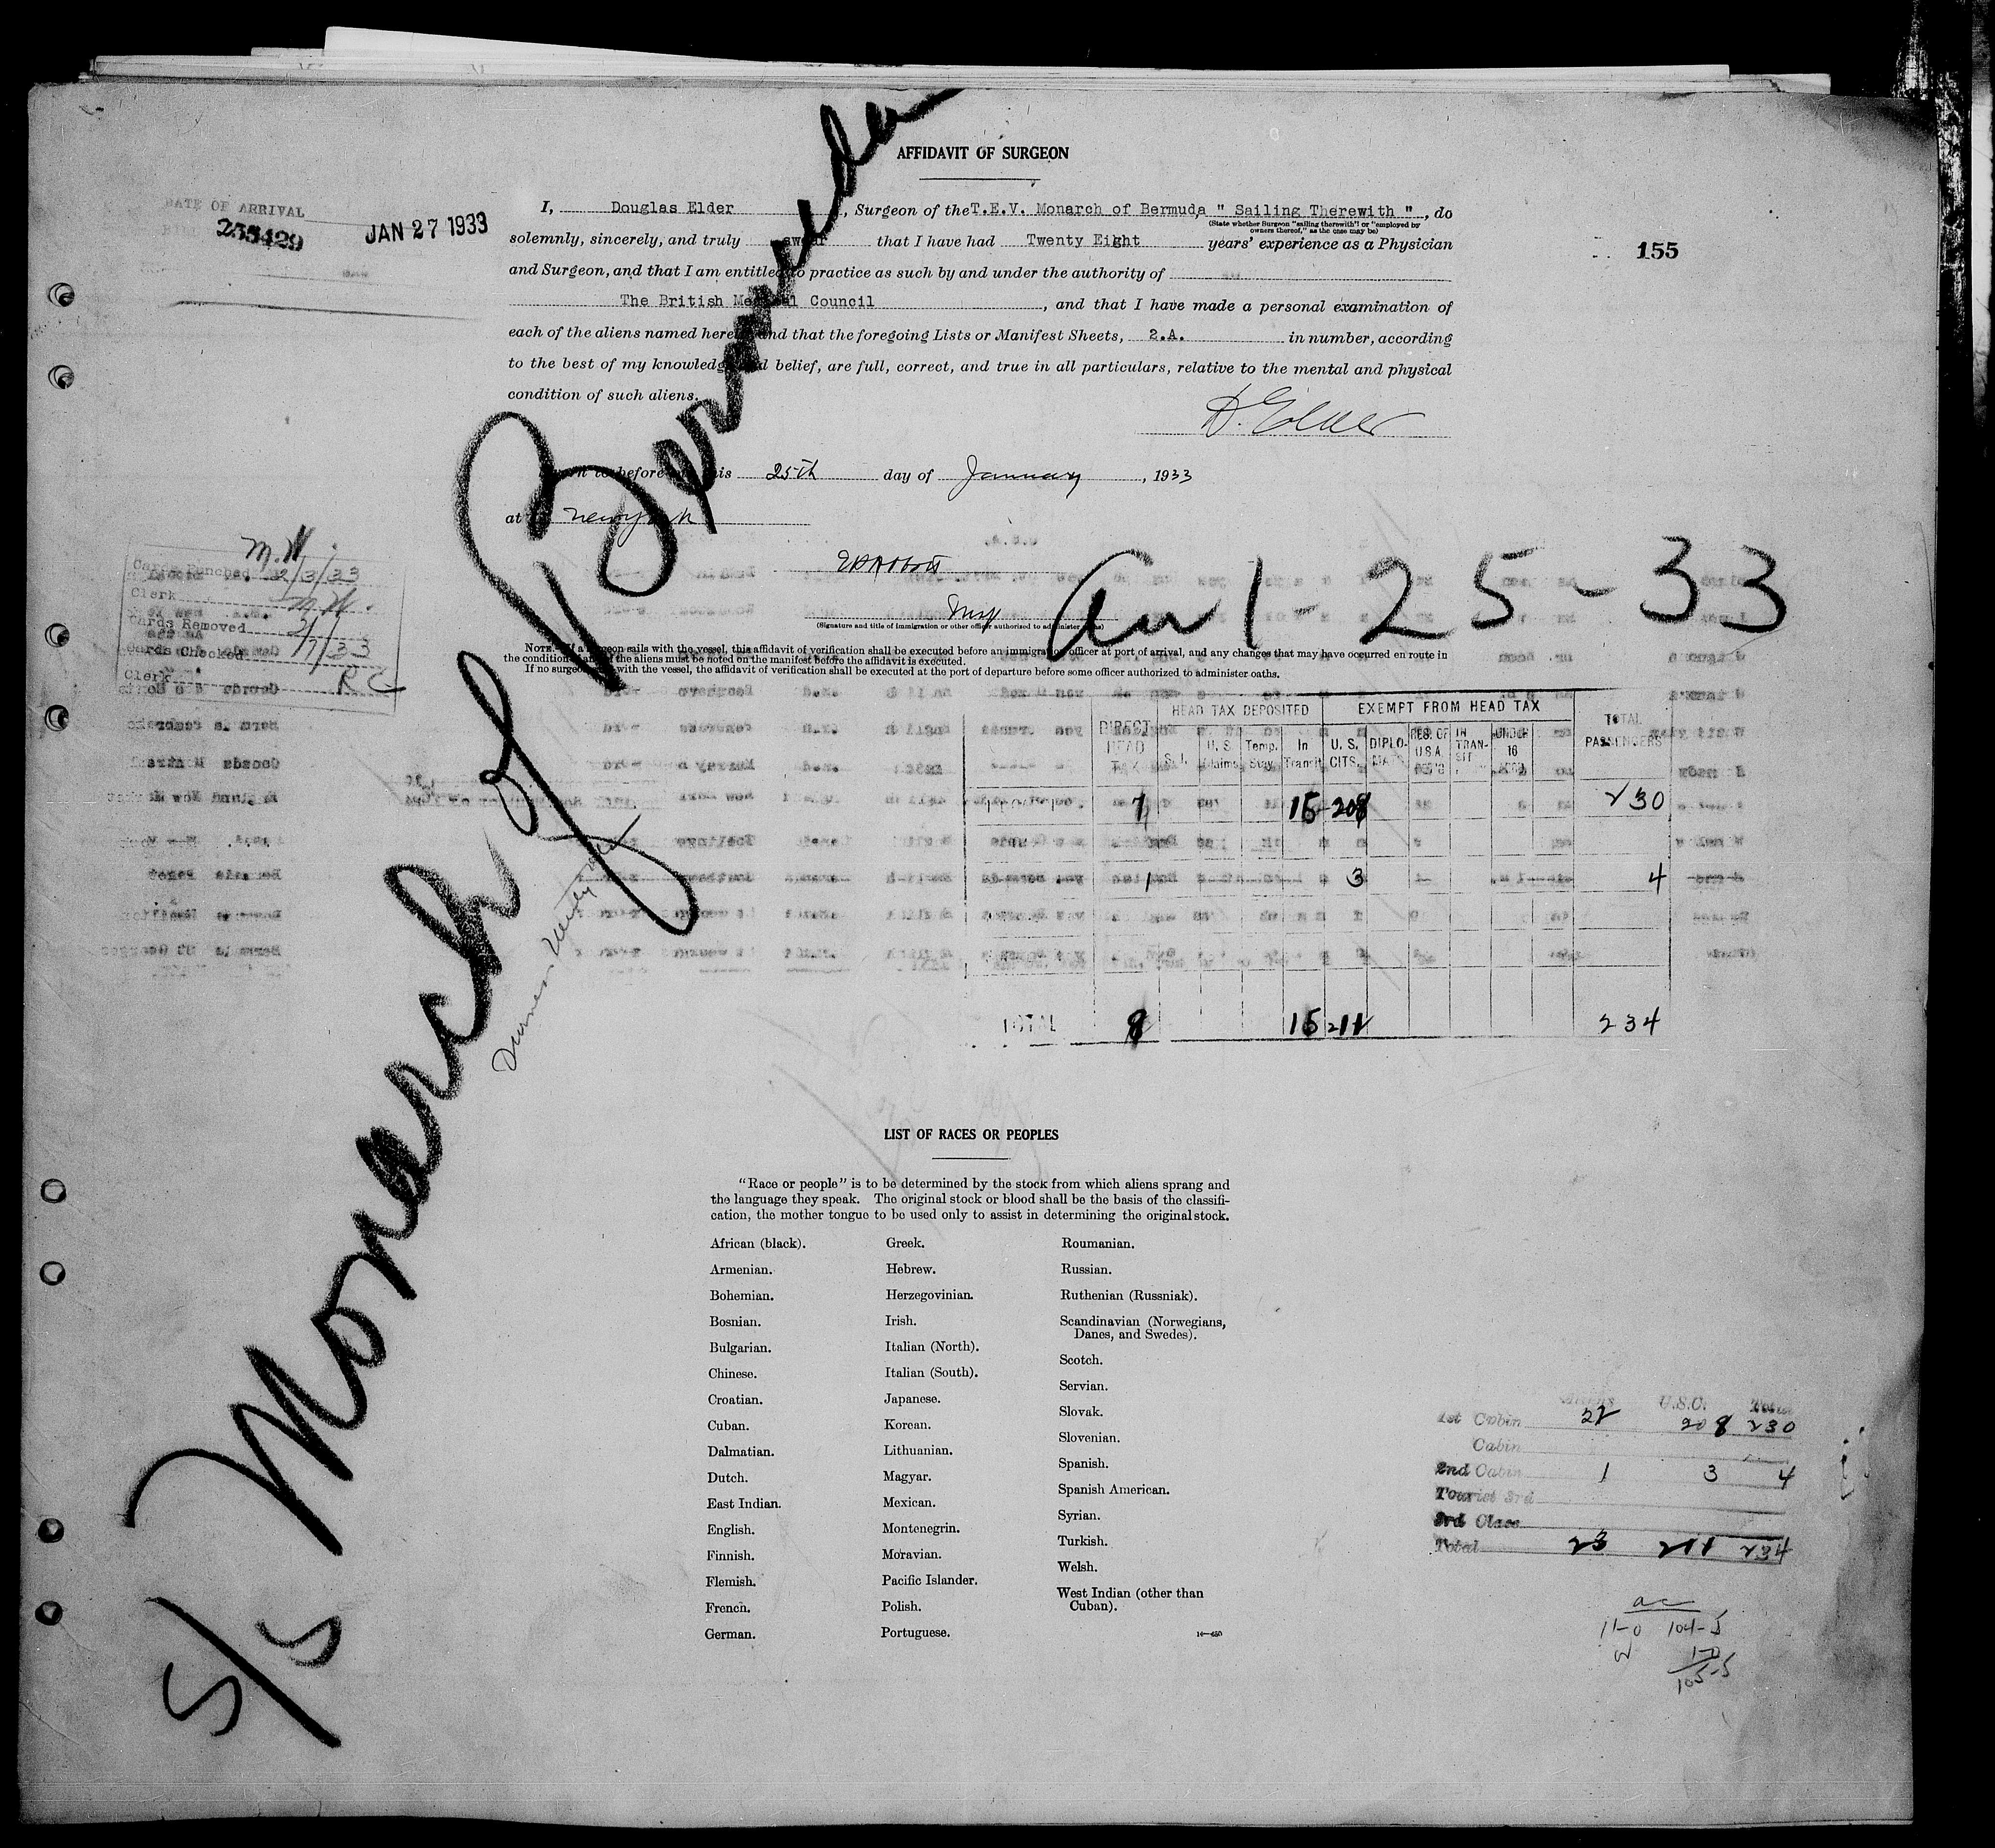 AFFIDAVIT OF SURGEON
DATE OF ARRIVAL
JAN 27 1933
255429
155
I, Douglas Elder, Surgeon of the T.E.V. Monarch of Bermuda " Sailing Therewith ", do
(State whether Surgeon "sailing therewith" or "employed by
owners thereof," as the case may be)
solemnly, sincerely, and truly swear that I have had Twenty Eight years' experience as a Physician
and Surgeon, and that I am entitled to practice as such by and under the authority of
The British Medical Council, and that I have made a personal examination of
each of the aliens named herein and that the foregoing Lists or Manifest Sheets, 2.A. in number, according
to the best of my knowledge and belief, are full, correct, and true in all particulars, relative to the mental and physical
condition of such aliens.
D. Elder
to before this 25th day of January, 1933
at New York
(Signature and title of immigration or other officer authorized to administer oaths)
S/S Monarch of Bermuda
Arr 1-25-33
M.W.
Cards Punched 2/3/33
Clerk M.W.
Cards Removed
Cards Checked
Clerk R C
NOTE.—If a surgeon sails with the vessel, this affidavit of verification shall be executed before an immigration officer at port of arrival, and any changes that may have occurred en route in
the condition of the aliens must be noted on the manifest before the affidavit is executed.
If no surgeon with the vessel, the affidavit of verification shall be executed at the port of departure before some officer authorized to administer oaths.
DIRECT HEAD TAX
HEAD TAX DEPOSITED
EXEMPT FROM HEAD TAX
TOTAL PASSENGERS
S.I. U.S. Claims Temp. Stay In Transit U.S. CITS. DIPLOMATS RES. OF U.S.A. IN TRANSIT UNDER 16
7 15 208 230
1 3 4
TOTAL 8 15 211 234
LIST OF RACES OR PEOPLES
"Race or people" is to be determined by the stock from which aliens sprang and
the language they speak. The original stock or blood shall be the basis of the classifi-
cation, the mother tongue to be used only to assist in determining the original stock.
African (black).
Armenian.
Bohemian.
Bosnian.
Bulgarian.
Chinese.
Croatian.
Cuban.
Dalmatian.
Dutch.
East Indian.
English.
Finnish.
Flemish.
French.
German.
Greek.
Hebrew.
Herzegovinian.
Irish.
Italian (North).
Italian (South).
Japanese.
Korean.
Lithuanian.
Magyar.
Mexican.
Montenegrin.
Moravian.
Pacific Islander.
Polish.
Portuguese.
Roumanian.
Russian.
Ruthenian (Russniak).
Scandinavian (Norwegians,
Danes, and Swedes).
Scotch.
Servian.
Slovak.
Slovenian.
Spanish.
Spanish American.
Syrian.
Turkish.
Welsh.
West Indian (other than
Cuban).
Aliens U.S.C. Total
1st Cabin 22 208 230
Cabin
2nd Cabin 1 3 4
Tourist 3rd
3rd Class
Total 23 211 234
11-0 104-5
105-5